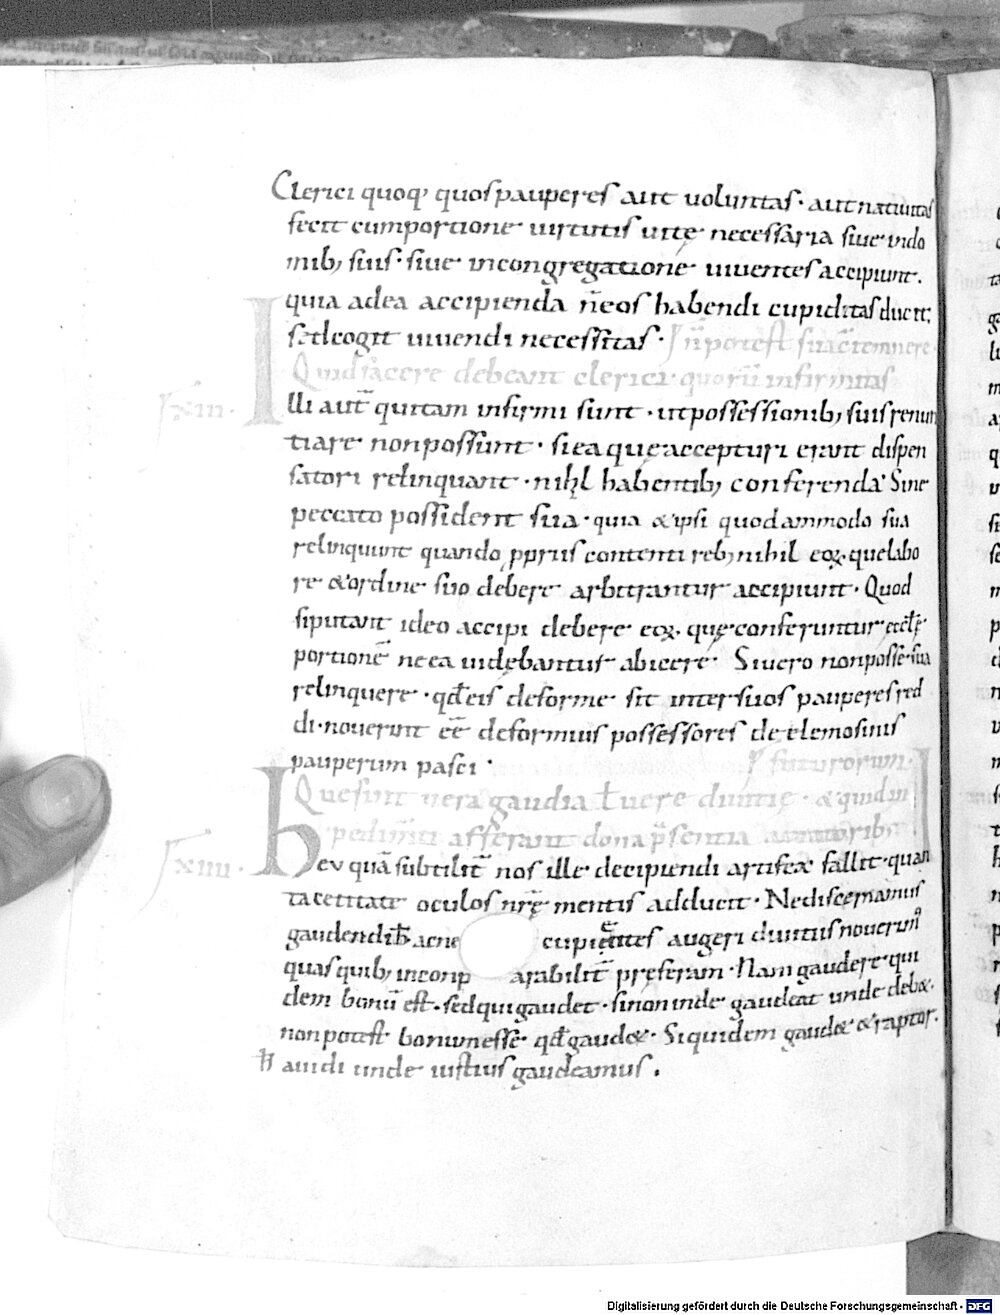 Clerici quoq; quos pauperes aut uoluntas · aut natiuitas
fecit cum portione uirtutis uitę necessaria siue in do
mib; suis · siue in congregatione uiuentes accipiunt.
quia ad ea accipienda n̄ eos habendi cupiditas ducit;
sed cogit uiuendi necessitas · n̄ potest
Quid facere debeant clerici quorū infirmitas
xiii · Illi aut̄ qui tam infirmi sunt · ut possessionib; suis renun
tiare non possunt · si ea que accepturi erant dispen
satori relinquant · nihl habentib; conferenda · Sine
peccato possident sua · quia & ipsi quodammodo sua
relinquunt quando pprus contenti reb; nihil eoꝝ que labo
re & ordine suo debere arbitrantur accipiunt · Quod
si putant ideo accipi debere eoꝝ que conferuntur eccłę
portionē ne ea uidebantur abicere · Si uero non posse sua
relinquere · qđ eis deforme sit inter suos pauperes red
di · nouerint eē deformius possessores de elemosinis
pauperum pasci · futurorum
Que sunt uera gaudia ł uere diuitię · & quid in
pedimti afferant dona p̄sentia amatorib;
xiiii · heu quā subtilit̄ nos ille decipiendi artifex fallit · quan
ta cecitate oculos nr̄ę mentis adducit · Ne discernamus
gaudendi ƀ ac ne cupientes augeri diuitiis nouerim9
quas quib; inconp arabilit̄ preferam · Nam gaudere qui
dem bonū est · sed qui gaudet · si non inde gaudeat unde deb&·
non potest bonum esse qđ gaud& · Siquidem gaud& & raptor·
ħ auidi unde iustius gaudeamus.
Digitalisierung gefördert durch die Deutsche Forschungsgemeinschaft - DFG